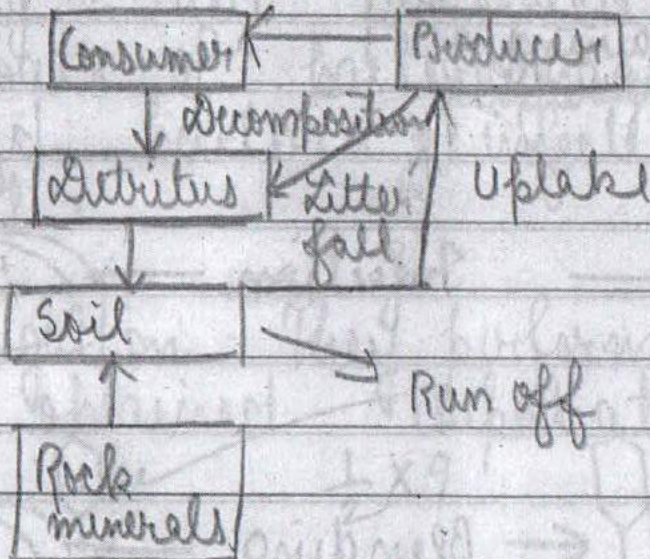 Consumer Producer
Decomposition
Detritus Litter Uptake
fall
Soil
Run off
Rock
minerals